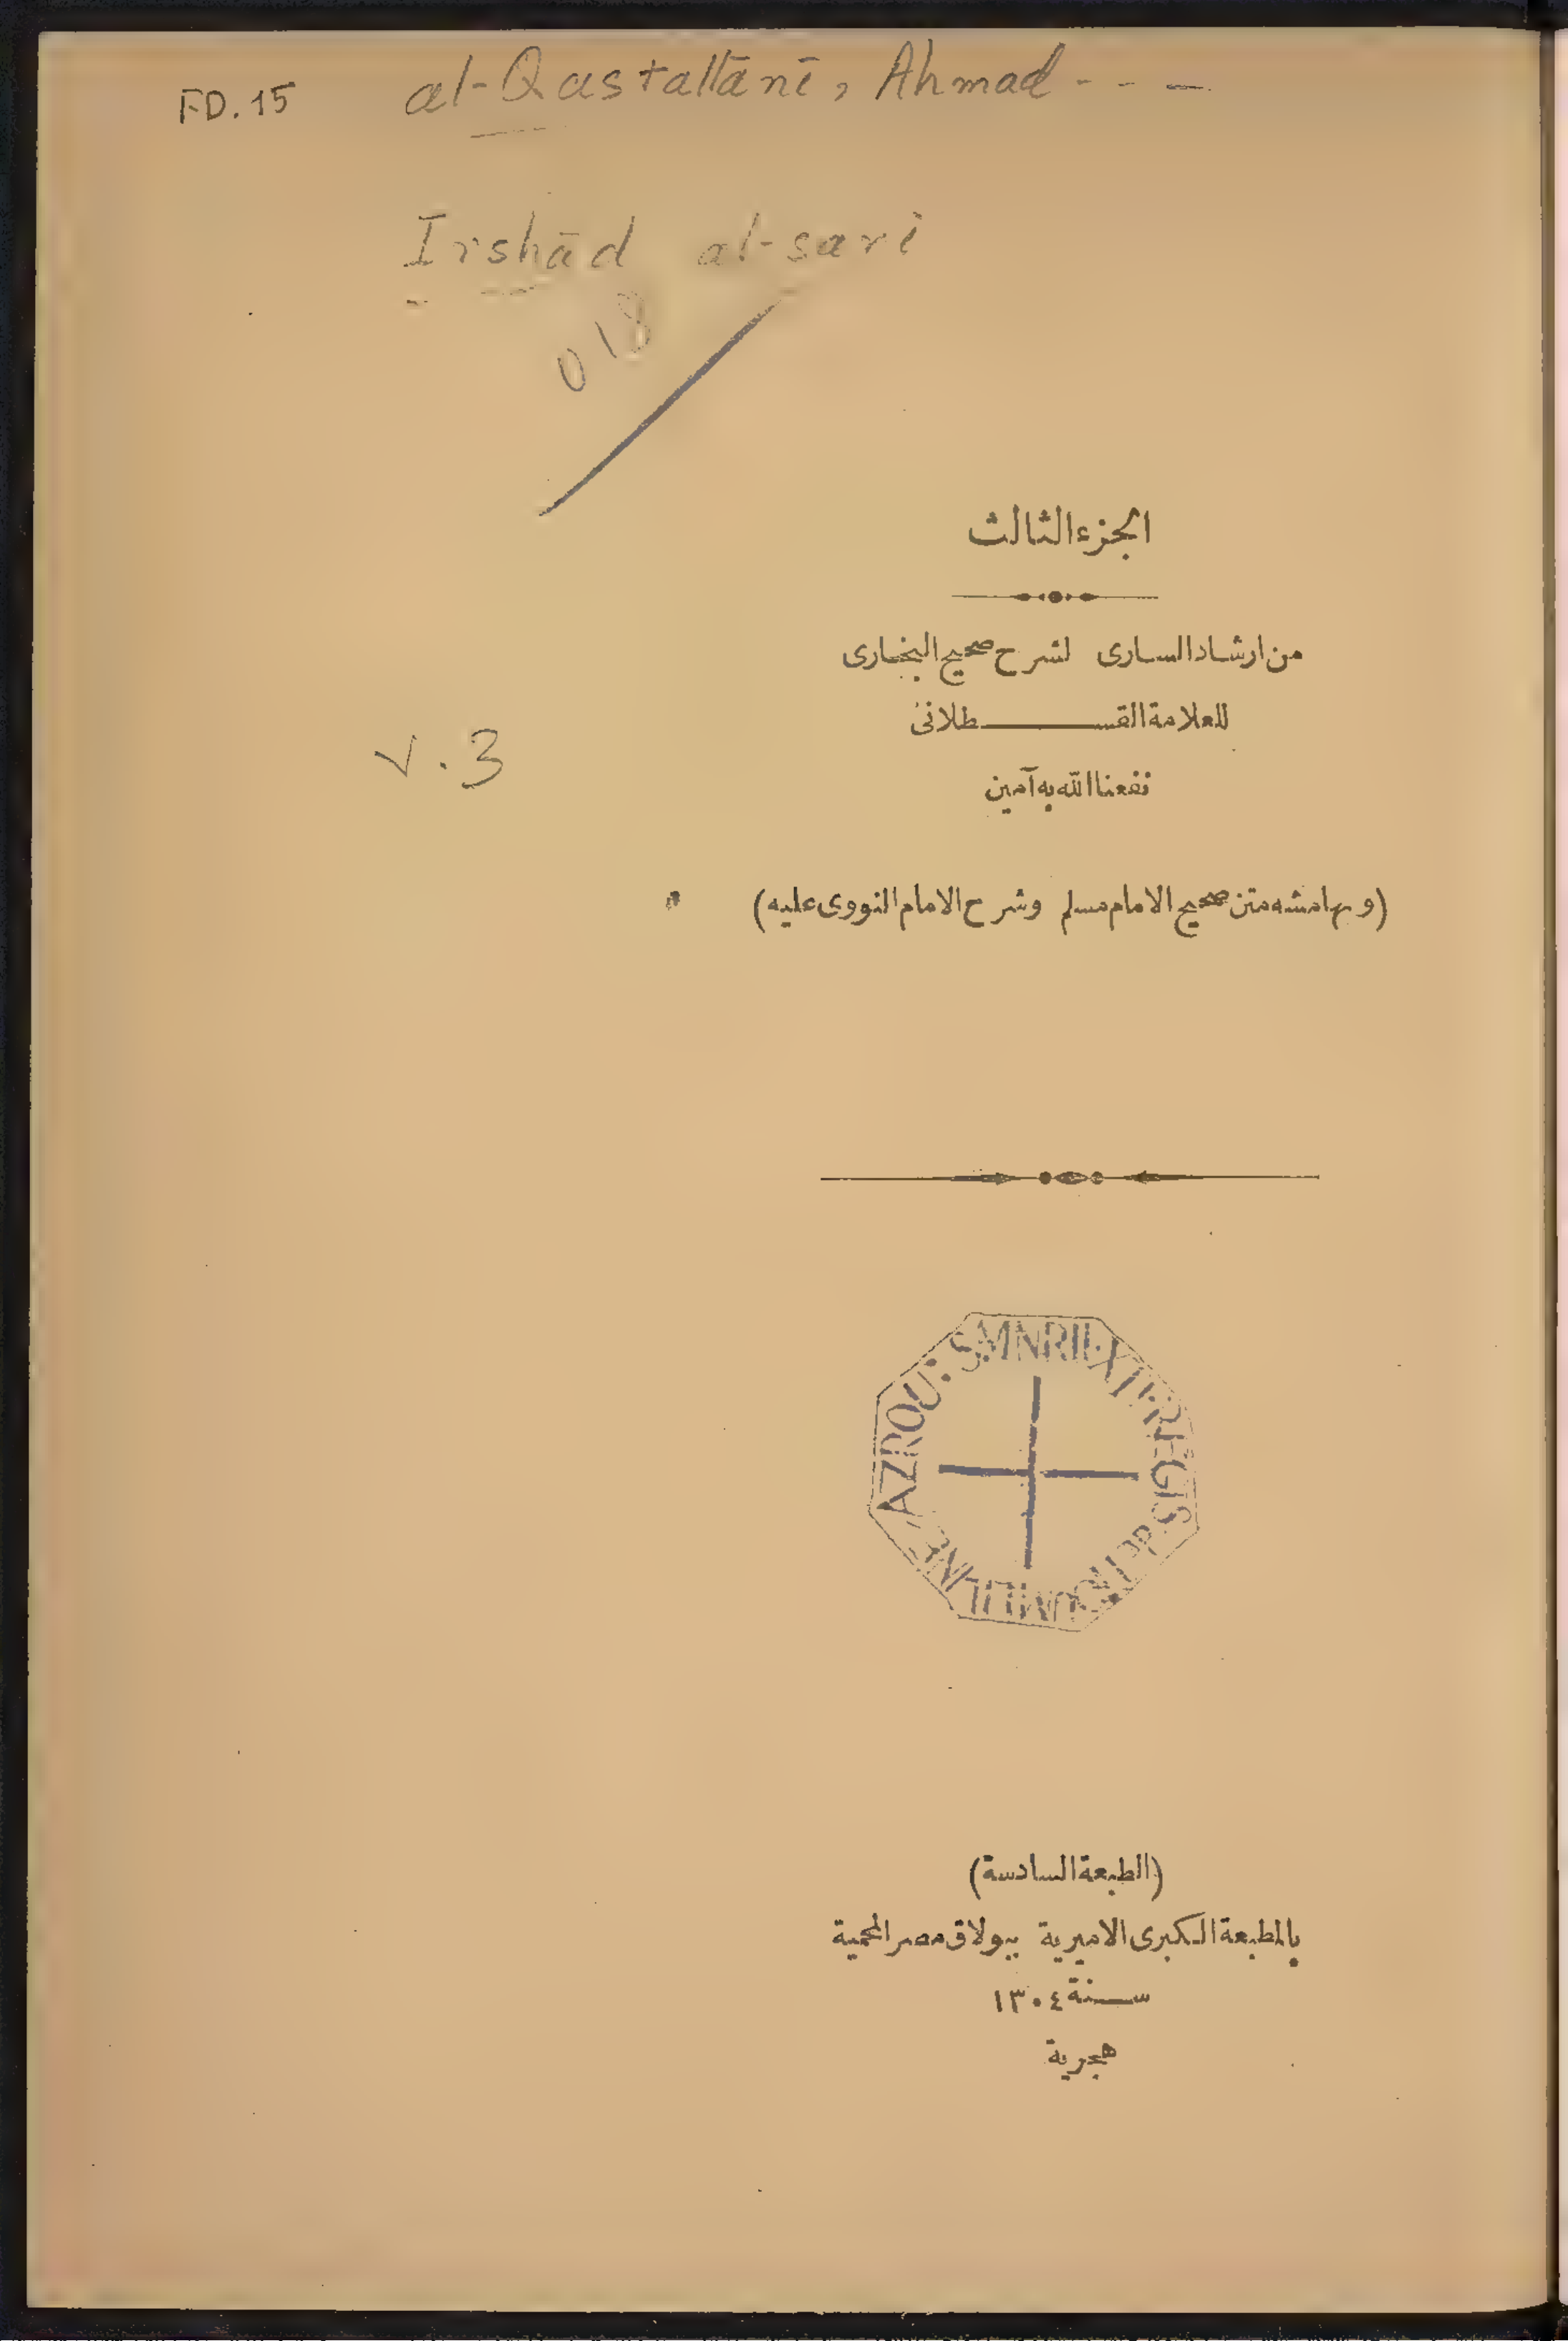 FD.15 al-Qastallānī, Ahmad - - -
Irshād al-sari
018
الجزء الثالث
من ارشاد السارى لشرح صحيح البخارى
للعلامة القسطلانى
v.3
نفعنا الله به آمين
(وبهامشه متن صحيح الامام مسلم وشرح الامام النووى عليه)
AZROU:
(الطبعة السادسة)
بالمطبعة الكبرى الاميرية ببولاق مصر المحمية
سنة ١٣٠٤
هجرية